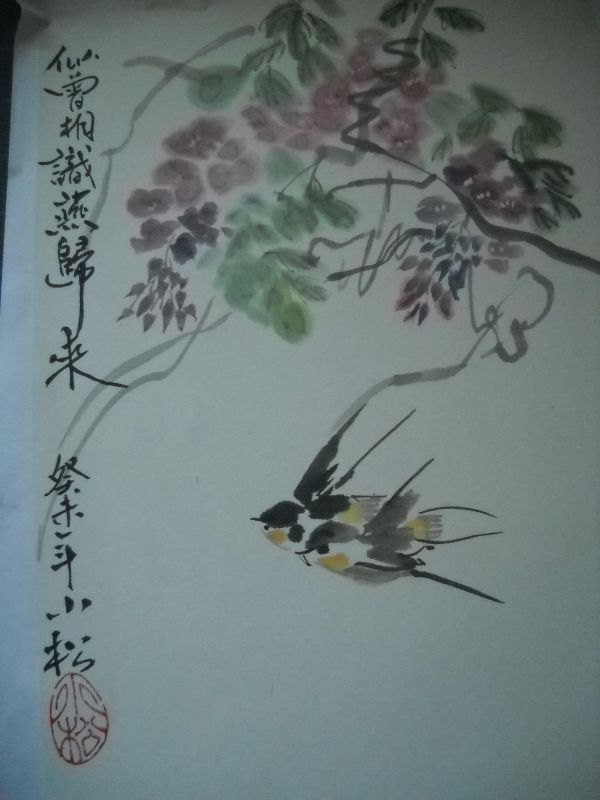 似曾相識燕歸来 癸未年小松
小松